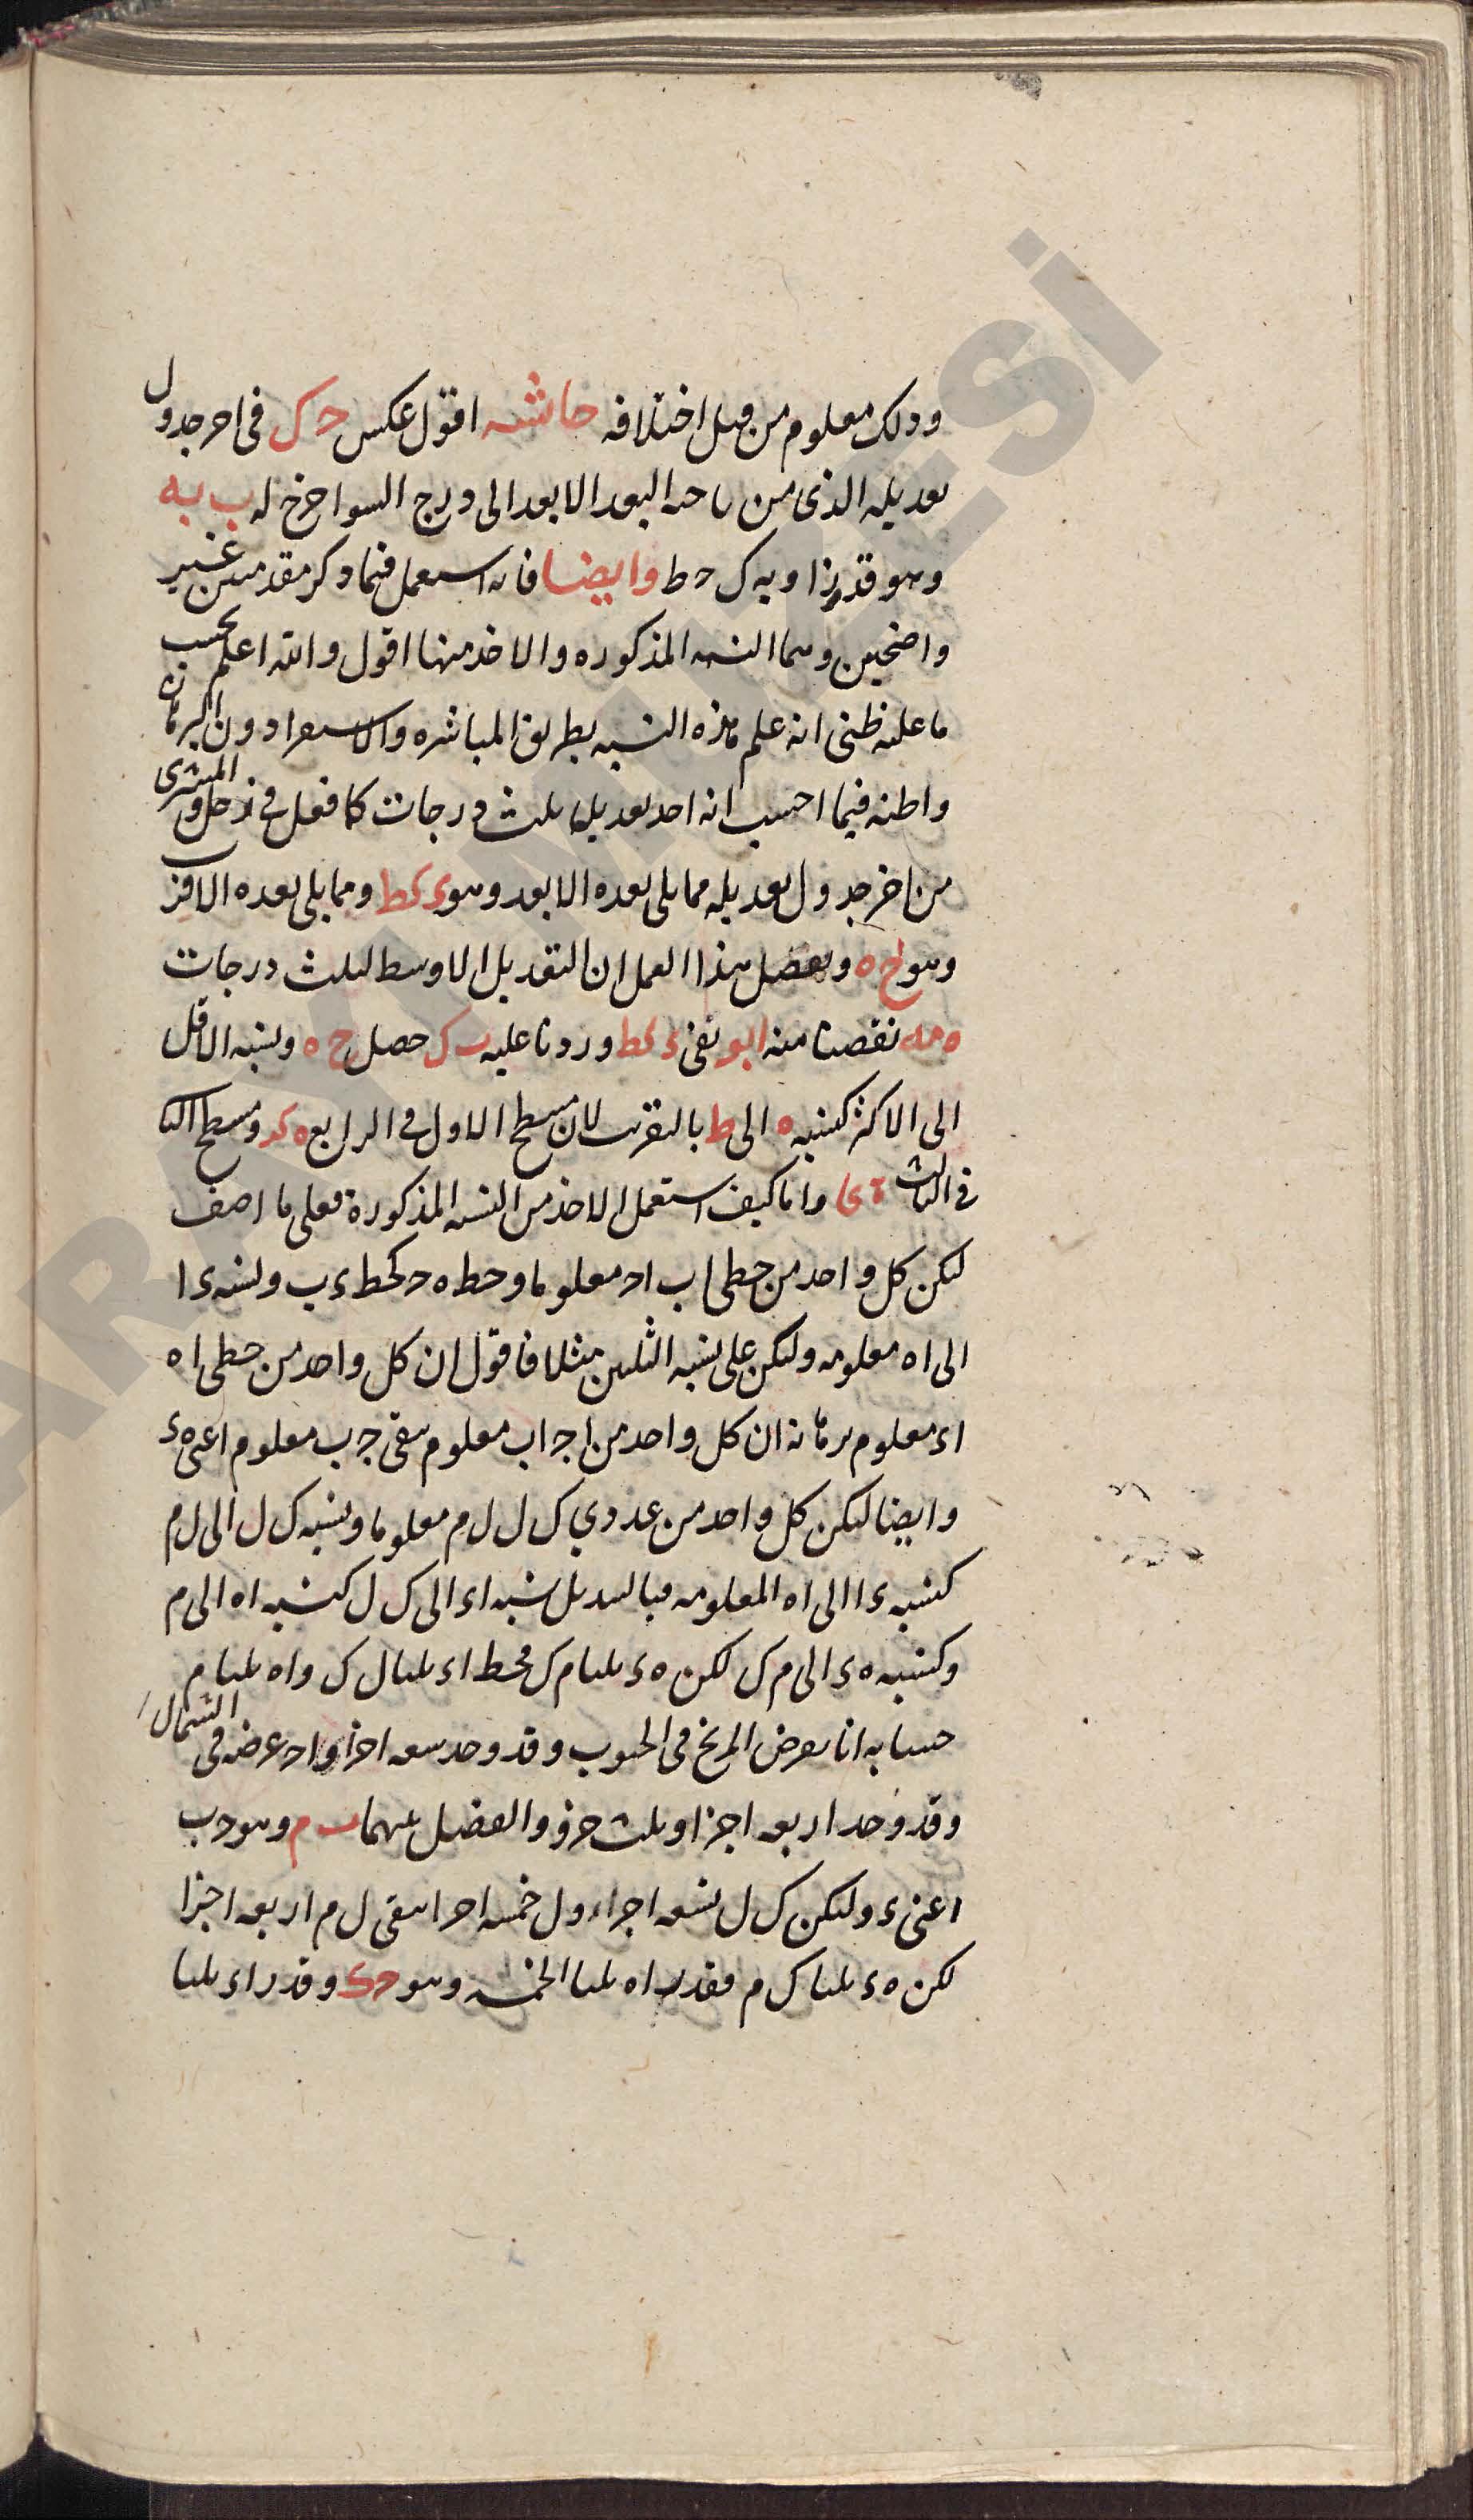 وذلك معلوم من قبل اختلافه حاشيه اقول عكس ح ك فى اخر جدول
تعديله الذى من ناحيه البعد الابعد الى درج السوا خرج له ب به
وهو قدر زاويه ك ح ط وايضا فانه استعمل فيما ذكر مقدمتين غير
واضحتين وهما النسبه المذكوره والاخذ منها اقول والله اعلم بحسب
ما عليه ظنى انه علم هذه النسبه بطريق المباشره والاستقرا دون البرهان
واظنه فيما احسب انه اخذ تعديل ثلث درجات كما فعل فى زحل والمشترى
من اخر جدول تعديله مما يلى بعده الابعد وهو ى كط ومما يلى بعده الاقرب
وهو لح ه وبفضل هذا العمل ان التعديل الاوسط لثلث درجات
نقصنا منه بقى ى كط وزدنا عليه ب ك حصل ح ه ونسبه الاقل
الى الاكثر كنسبه ه الى ط بالتقريب لان مسطح الاول فى الرابع ومسطح الثا
فى الثالث واما كيف استعمل الاخذ من النسبه المذكورة فعلى ما اصف
ليكن كل واحد من خطى اب اد معلوما وخط ه ح كخط ى ب ونسبه ى ا
الى اه معلومه وليكن على نسبه الثلثين مثلا فاقول ان كل واحد من خطى اه
اى معلوم برهانه ان كل واحد من اج اب معلوم يبقى جب معلوم اعنى ه ى
وايضا ليكن كل واحد من عددي ك ل ل م معلوما ونسبه ك ل الى ل م
كنسبه ى ا الى اه المعلومه فبالتبديل نسبه اى الى ك ل كنسبه اه الى م
وكنسبه ه ى الى م ك لكن ه ى ثلثا م ك فخط اى ثلثا ل ك واه ثلثا م
حسابه انا نعرض المريخ فى الجنوب وقد وجد سبعه اجزا واح عرضه فى الشمال
وقد وجد اربعه اجزا وثلث جزو والفضل بينهما ب م وهو ج ب
اعنى ى وليكن ك ل تسعه اجزاء ول خمسه اجزا يبقى ل م اربعه اجزا
لكن ه ى ثلثا ك م فقدر اه ثلثا الخمسه وهو ح ك وقدر اى ثلثا